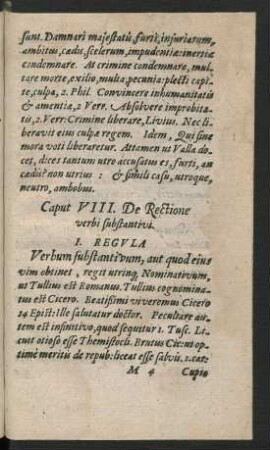 sunt. Damnari majestatis, furti, injuriarum,
ambitus, cædis, scelerum, impudentiæ: inertiæ
condemnare. At crimine condemnare, mul-
tare morte, exilio, multa, pecunia: plecti capi-
te, culpa, 2. Phil. Convincere inhumanitatis
& amentiæ, 2 Verr. Absolvere improbita-
tis, 2. Verr: Crimine liberare, Livius. Nec li-
beravit eius culpa regem. Idem, Qui sine
mora voti liberaretur. Attamen ut Valla do-
cet, dices tantum utro accusatus es, furti, an
cædis? non utrius: & simili casu, utroque,
neutro, ambobus.
Caput VIII. De Rectione
verbi substantivi.
I. REGVLA
Verbum substantivum, aut quod eius
vim obtinet, regit utrinq, Nominativum,
ut Tullius est Romanus. Tullius cognomina-
tus est Cicero. Beatißimi viveremus Cicero
14 Epist: Ille salutatur doctor. Peculiare au-
tem est infinitivo, quod sequitur 1. Tusc. Li-
cuit otioso esse Themistocli. Brutus Cic: ut op-
timè meritis de repub: liceat esse salvis, 2. cat:
M 4 Cupio